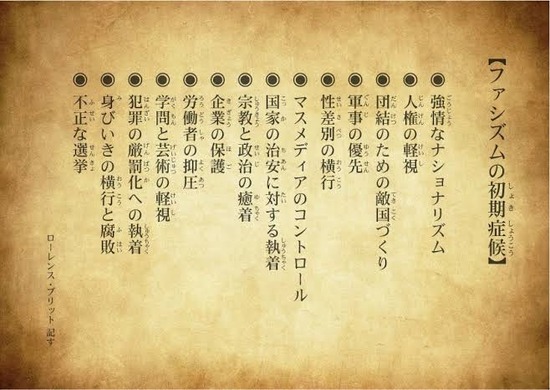 【ファシズムの初期症候】
◉強情なナショナリズム
◉人権の軽視
◉団結のための敵国づくり
◉軍事の優先
◉性差別の横行
◉マスメディアのコントロール
◉国家の治安に対する執着
◉宗教と政治の癒着
◉企業の保護
◉労働者の抑圧
◉学問と芸術の軽視
◉犯罪の厳罰化への執着
◉身びいきの横行と腐敗
◉不正な選挙
ローレンス・ブリット 記す